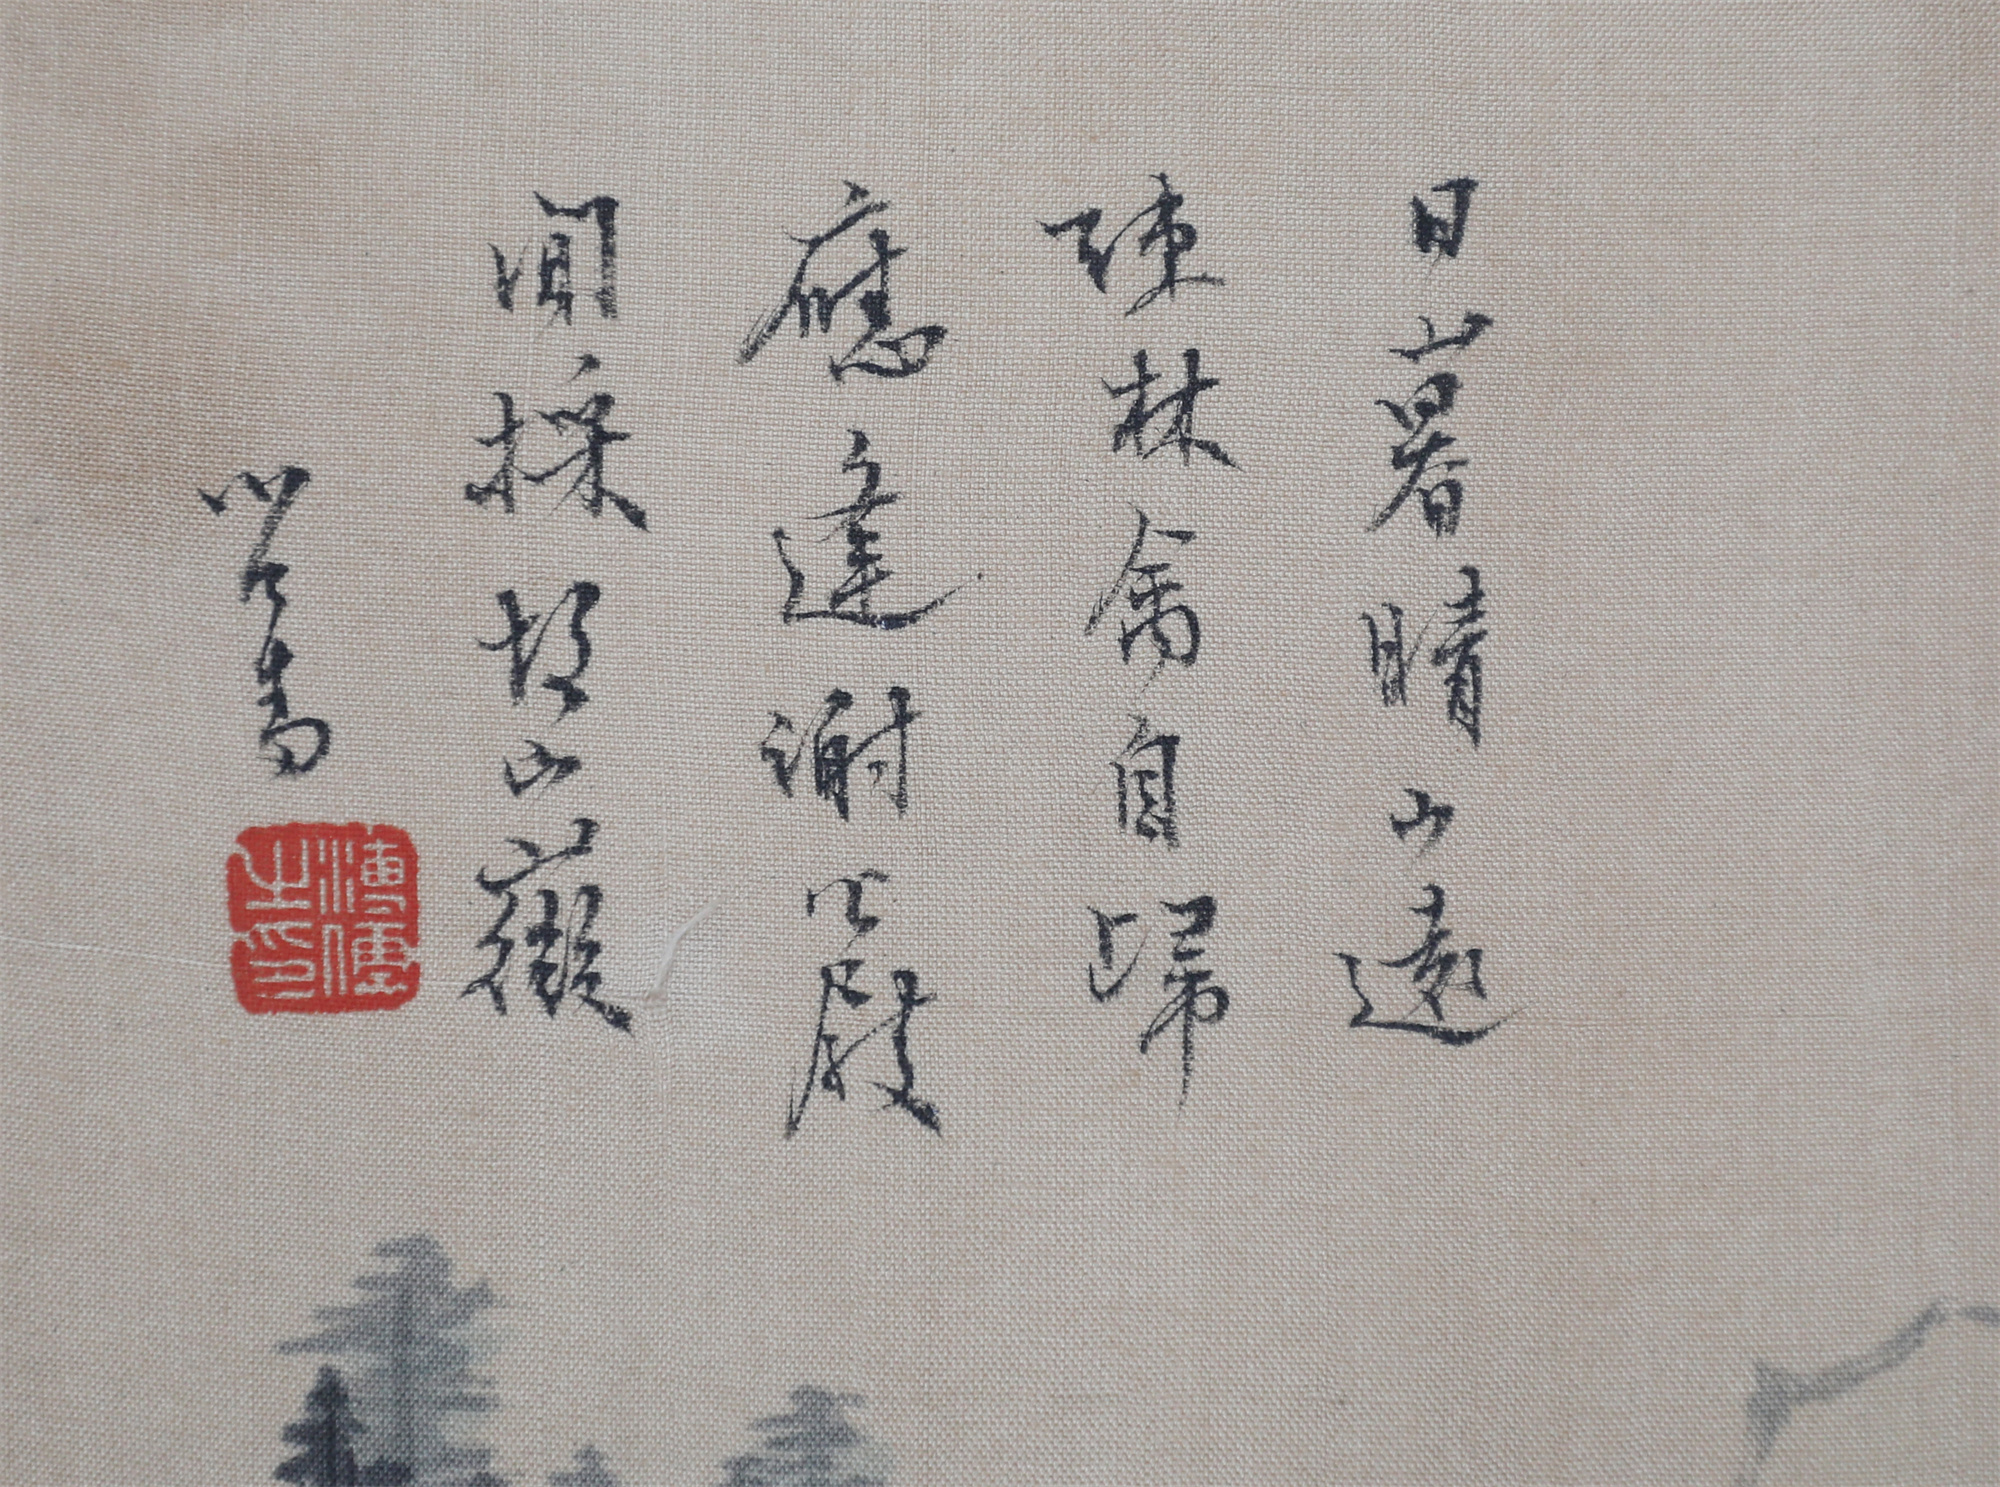 日暮晴山遠
疎林禽自歸
應違謝公屐
閒採故山薇
心畬
溥儒之印